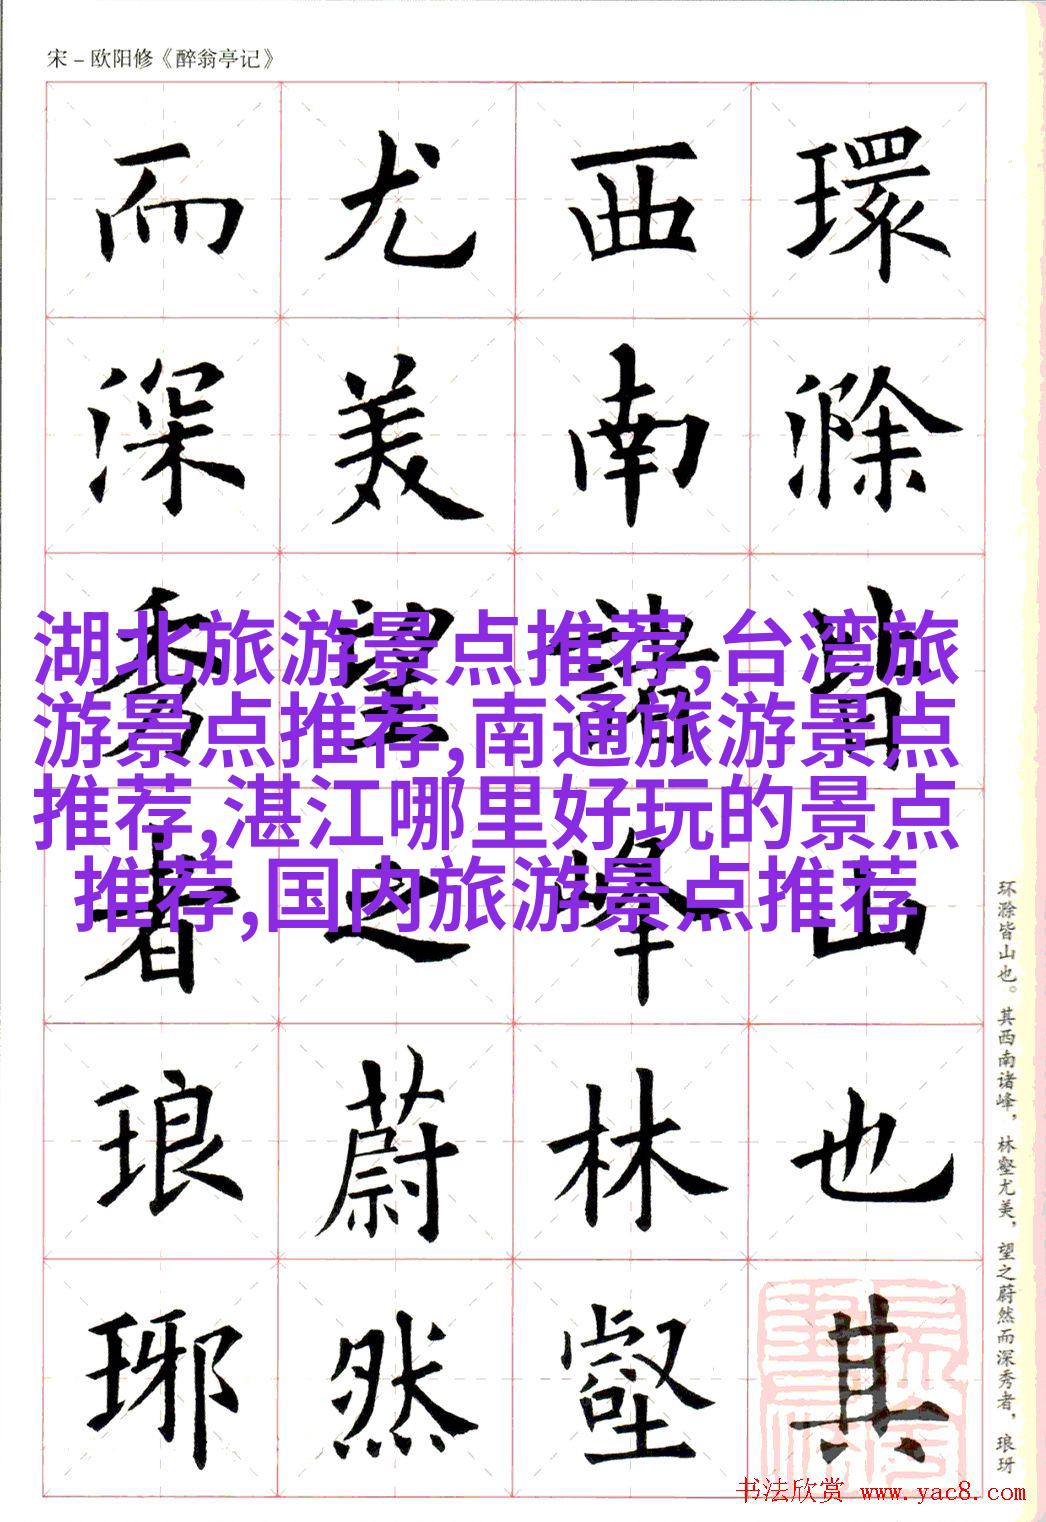 宋－欧阳修《醉翁亭记》
環滁皆山也其
西南諸峰林壑
尤美望之蔚然
而深秀者琅琊
湖北旅游景点推荐,台湾旅
游景点推荐,南通旅游景点
推荐,湛江哪里好玩的景点
推荐,国内旅游景点推荐
环滁皆山也。其西南诸峰，林壑尤美，望之蔚然而深秀者，琅玡
书法欣赏 www.yac8.com